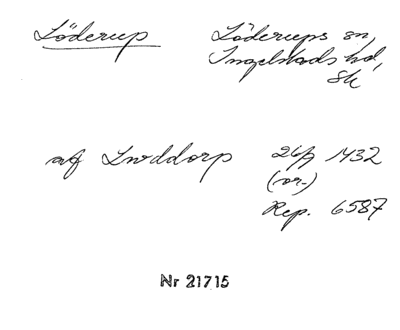 Löderup Löderups sn,
Ingelstads hd,
Sk
af Lwddorp 26/7 1432
(or.)
Rep. 6587
Nr 21715